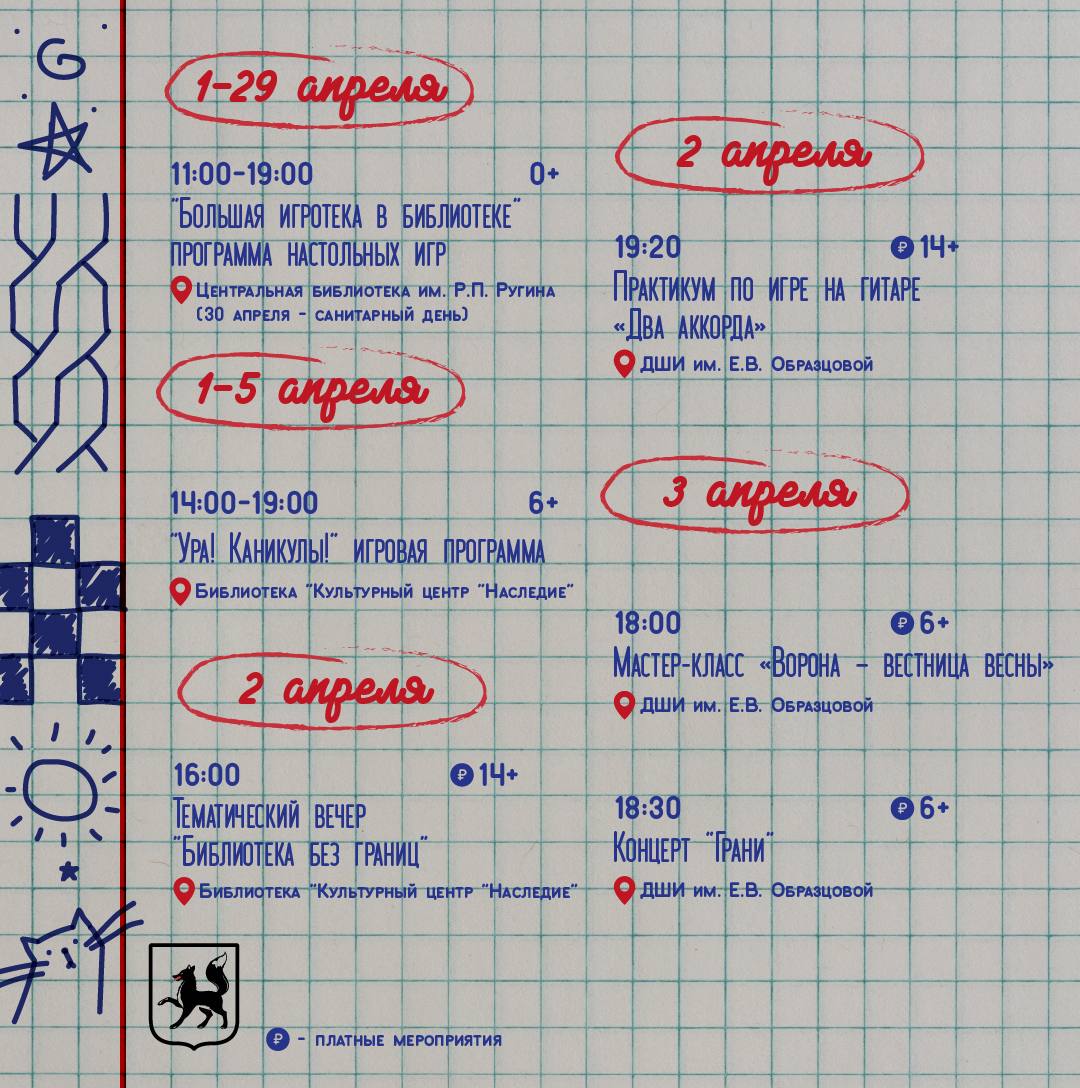 1-29 апреля
11:00-19:00 0+
"Большая игротека в библиотеке"
программа настольных игр
Центральная библиотека им. Р.П. Ругина
(30 апреля - санитарный день)
1-5 апреля
14:00-19:00 6+
"Ура! Каникулы!" игровая программа
Библиотека "Культурный центр "Наследие"
2 апреля
16:00 ₽ 14+
Тематический вечер
"Библиотека без границ"
Библиотека "Культурный центр "Наследие"
2 апреля
19:20 ₽ 14+
Практикум по игре на гитаре
«Два аккорда»
ДШИ им. Е.В. Образцовой
3 апреля
18:00 ₽ 6+
Мастер-класс «Ворона – вестница весны»
ДШИ им. Е.В. Образцовой
18:30 ₽ 6+
Концерт "Грани"
ДШИ им. Е.В. Образцовой
₽ - платные мероприятия